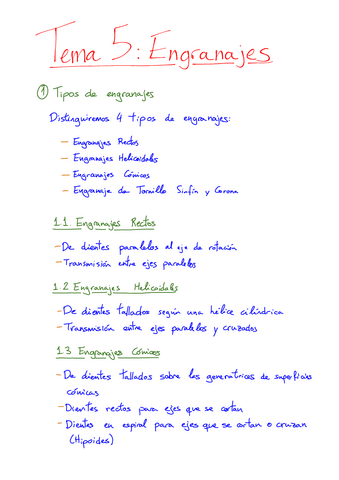 Tema 5: Engranajes
① Tipos de engranajes
Distinguiremos 4 tipos de engranajes:
— Engranajes Rectos
— Engranajes Helicoidales
— Engranajes Cónicos
— Engranaje de Tornillo Sinfín y Corona
1.1. Engranajes Rectos
– De dientes paralelos al eje de rotación
– Transmisión entre ejes paralelos
1.2 Engranajes Helicoidales
– De dientes tallados según una hélice cilíndrica
– Transmisión entre ejes paralelos y cruzados
1.3 Engranajes Cónicos
– De dientes tallados sobre las generatrices de superficies
cónicas
– Dientes rectos para ejes que se cortan
– Dientes en espiral para ejes que se cortan o cruzan
(Hipoides)